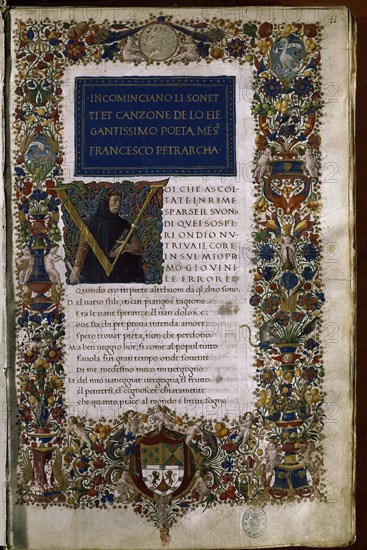 ·INCOMINCIANO LI SONET
TI ET CANZONE DE LO ELE
GANTISSIMO POETA MES͛
FRANCESCO PETRARCHA·
VOI CHE ASCOL
TATE IN RIME
SPARSE IL SUONO
DI QUEI SOSPI
RI ONDIO NU
TRIVA IL CORE
IN SUL MIO PRI
MO GIOVINI
LE ERRORE
Quando era in parte altr huom da ql chio sono.
Del vario stile, in cui piango et ragiono
Era le vane speranze el van dolore:
Ove sia chi per prova intenda amore:
Spero trovar pieta, non che perdono.
Ma ben veggio hor, si come al popul tutto
Favola fui gran tempo onde sovente
Di me medesmo meco mi vergogno
Et del mio vaneggiar vergogna el frutto
El pentersi, el cognoscer chiaramente
che quanto piace al mondo è breve sogno